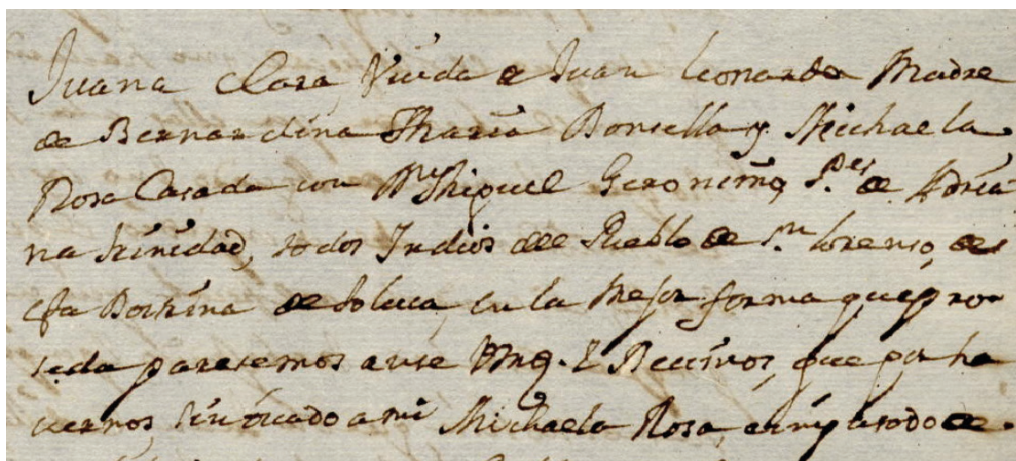 Juana Clara Viuda de Juan Leonardo Madre
de Bernardina Maria Donsella y Michaela
Rosa Casada con Miguel Geronimo, P.es de Adria
na trinidad, todos Indios del Pueblo de S.n Lorenso, de es
ta Doctrina de toluca, en la mejor forma que pro
seda paresemos ante Vmg. y Desimos, que por ha
vernos a mi Michaela Rosa,